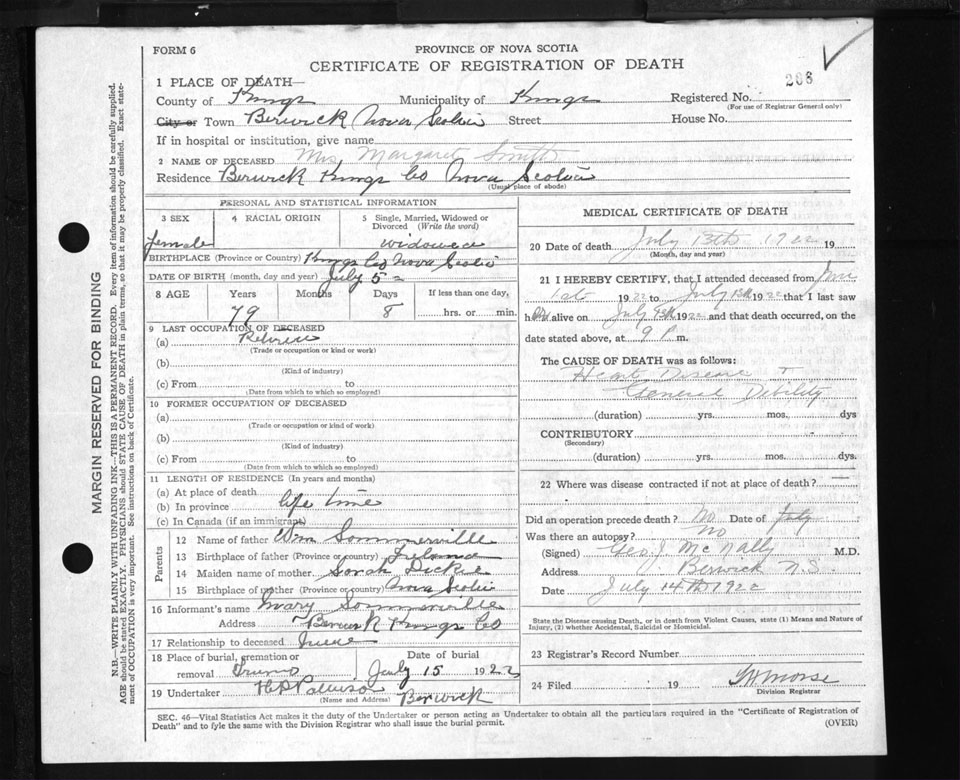 FORM 6
PROVINCE OF NOVA SCOTIA
CERTIFICATE OF REGISTRATION OF DEATH
268
1 PLACE OF DEATH—
County of Kings Municipality of Kings Registered No.
(For use of Registrar General only)
City or Town Berwick Nova Scotia Street House No.
If in hospital or institution, give name
2 NAME OF DECEASED Mrs Margaret Smith
Residence Berwick Kings Co Nova Scotia
(Usual place of abode)
PERSONAL AND STATISTICAL INFORMATION
3 SEX 4 RACIAL ORIGIN 5 Single, Married, Widowed or Divorced (Write the word)
female widowed
BIRTHPLACE (Province or Country) Kings Co Nova Scotia
DATE OF BIRTH (month, day and year) July 5
8 AGE Years Months Days If less than one day,
79 8 hrs. or min.
9 LAST OCCUPATION OF DECEASED
(a) Retired
(Trade or occupation or kind or work)
(b)
(Kind of industry)
(c) From to
(Date from which to which so employed)
10 FORMER OCCUPATION OF DECEASED
(a)
(Trade or occupation or kind of work)
(b)
(Kind of industry)
(c) From to
(Date from which to which so employed)
11 LENGTH OF RESIDENCE (In years and months)
(a) At place of death
(b) In province life time
(c) In Canada (if an immigrant)
Parents
12 Name of father Wm Sommerville
13 Birthplace of father (Province or country) Ireland
14 Maiden name of mother Sarah Dickie
15 Birthplace of mother (Province or country) Nova Scotia
16 Informant's name Mary Sommerville
Address Berwick Kings Co
17 Relationship to deceased
18 Place of burial, cremation or removal Date of burial
July 15 1922
19 Undertaker Berwick
(Name and Address)
MEDICAL CERTIFICATE OF DEATH
20 Date of death July 13th 1922 19
(Month, day and year)
21 I HEREBY CERTIFY, that I attended deceased from June
1st 1922 to July 13th 1922 that I last saw
her alive on July 1922 and that death occurred, on
date stated above, at 9 P. m.
The CAUSE OF DEATH was as follows:
Heart Disease
General Debility
(duration) yrs. mos. dys
CONTRIBUTORY
(Secondary)
(duration) yrs. mos. dys.
22 Where was disease contracted if not at place of death? —
Did an operation precede death? No Date of July
Was there an autopsy? No
(Signed) Geo. J. McNally M.D.
Address Berwick N.S.
Date July 14th 1922
State the Disease causing Death, or in death from Violent Causes, state (1) Means and Nature of Injury, (2) whether Accidental, Suicidal or Homicidal.
23 Registrar's Record Number
24 Filed 19 Morse
Division Registrar
SEC. 46—Vital Statistics Act makes it the duty of the Undertaker or person acting as Undertaker to obtain all the particulars required in the "Certificate of Registration of
Death" and to fyle the same with the Division Registrar who shall issue the burial permit. (OVER)
MARGIN RESERVED FOR BINDING
N.B.—WRITE PLAINLY WITH UNFADING INK—THIS IS A PERMANENT RECORD. Every item of information should be carefully supplied.
AGE should be stated EXACTLY. PHYSICIANS should STATE CAUSE OF DEATH in plain terms, so that it may be properly classified. Exact statement
of OCCUPATION is very important. See instructions on back of Certificate.